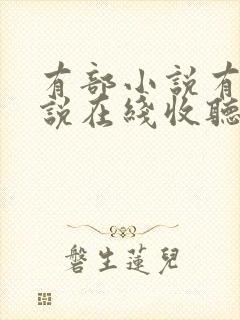 有部小説有
説在綫收聽
磐生蓮兒